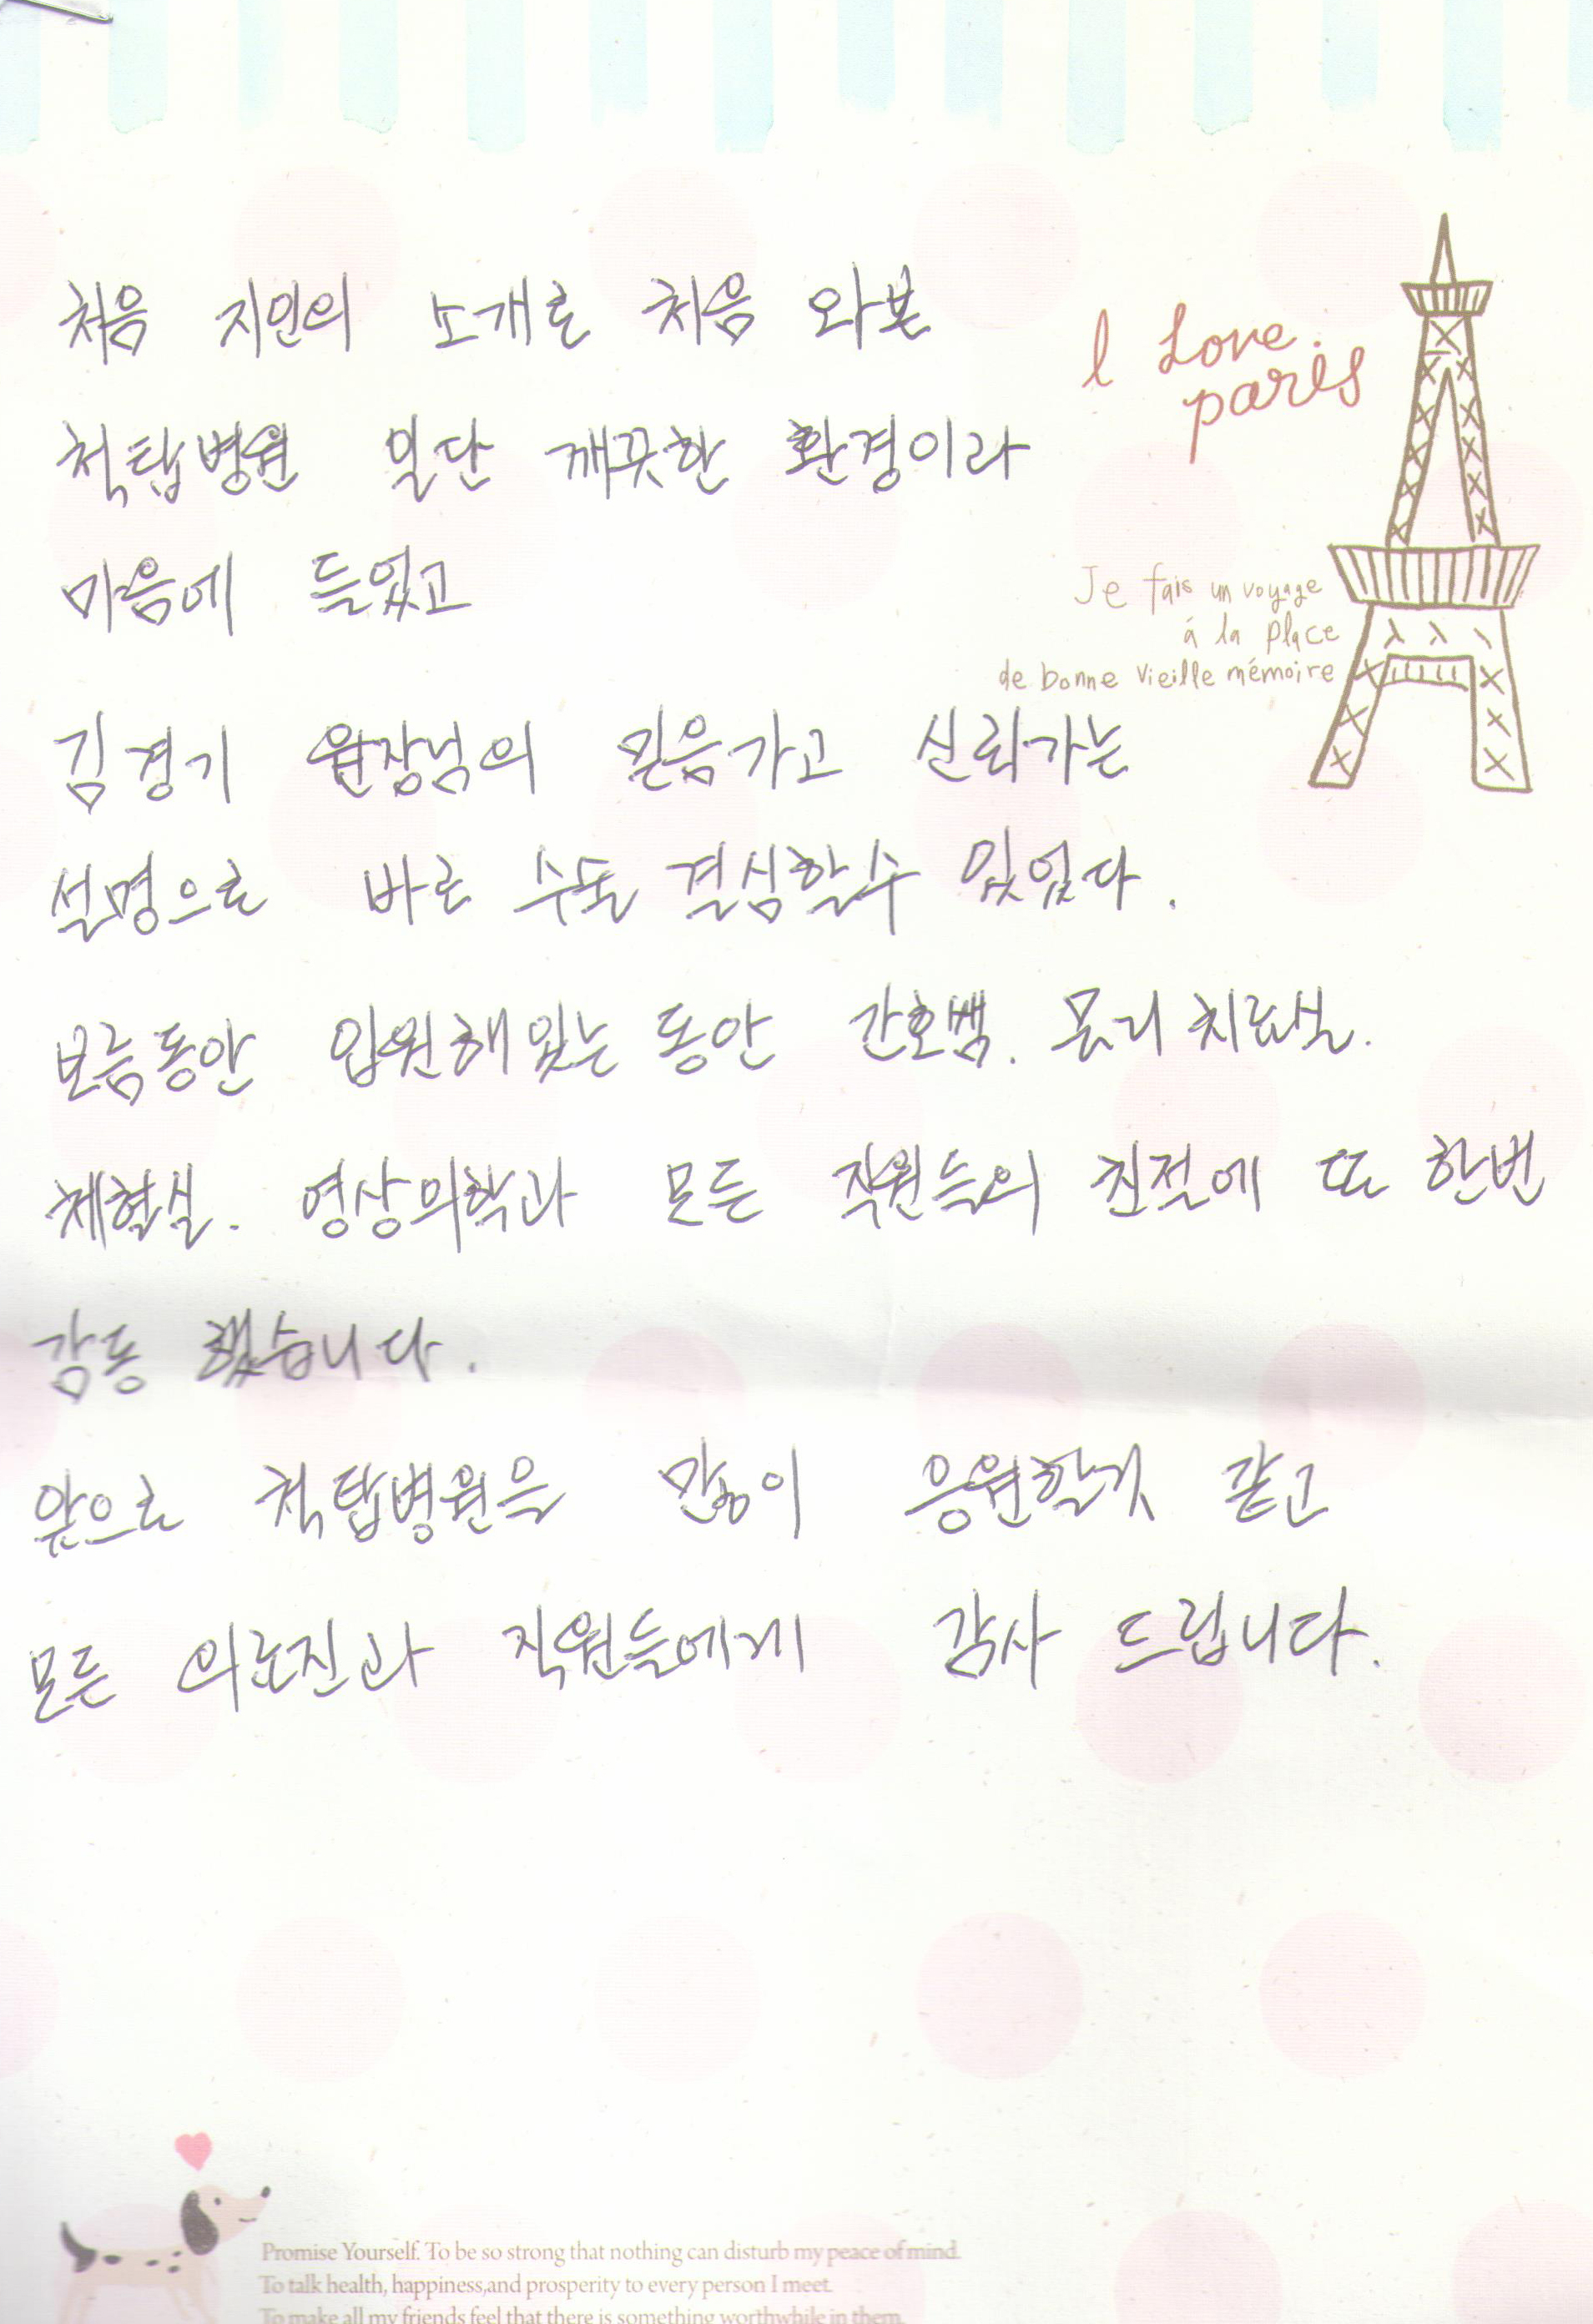 처음 지인의 소개로 처음 와본
척탑병원 일단 깨끗한 환경이라
마음에 들었고
김경기 원장님의 믿음가고 신뢰가는
설명으로 바로 수술 결심할수 있었다.
보름동안 입원해있는 동안 간호쌤. 물리치료실.
채혈실. 영상의학과 모든 직원들의 친절에 또 한번
감동 했습니다.
앞으로 척탑병원을 많이 응원할것 같고
모든 의료진과 직원들에게 감사 드립니다.
I Love
paris
Je fais un voyage
á la place
de bonne vieille mémoire
Promise Yourself. To be so strong that nothing can disturb my peace of mind.
To talk health, happiness,and prosperity to every person I meet.
To make all my friends feel that there is something worthwhile in them.